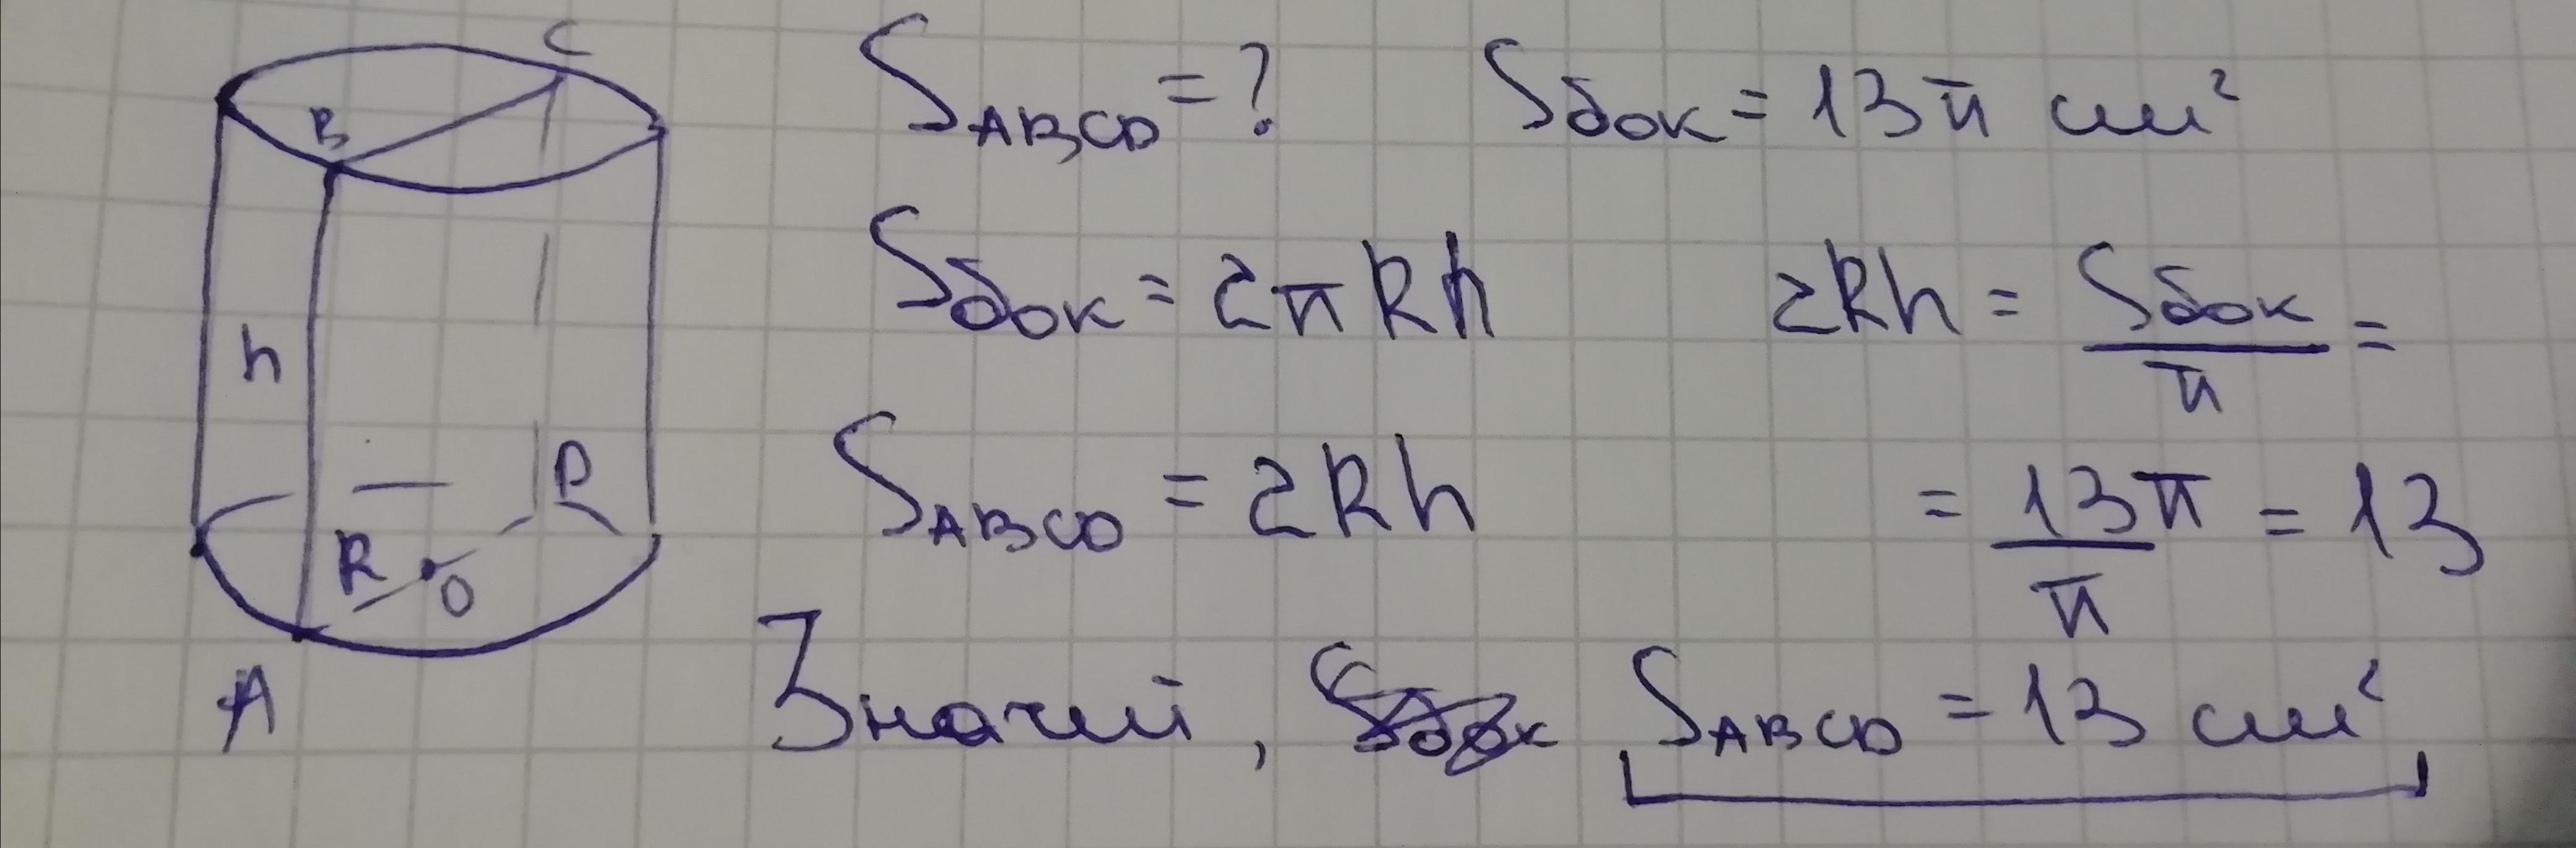 C
B
h
R O D
A
S_ABCD = ? Sбок = 13π см²
Sбок = 2πRh 2Rh = Sбок/π =
S_ABCD = 2Rh = 13π/π = 13
Значит, S_ABCD = 13 см²